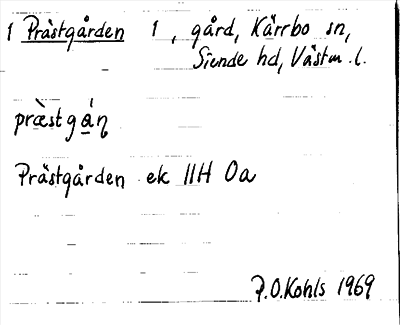 1 Prästgården 1, gård, Kärrbo sn,
Siende hd, Västm. l.
prὲstgą́ṇ
Prästgården ek 11H 0a
P.O. Kohls 1969